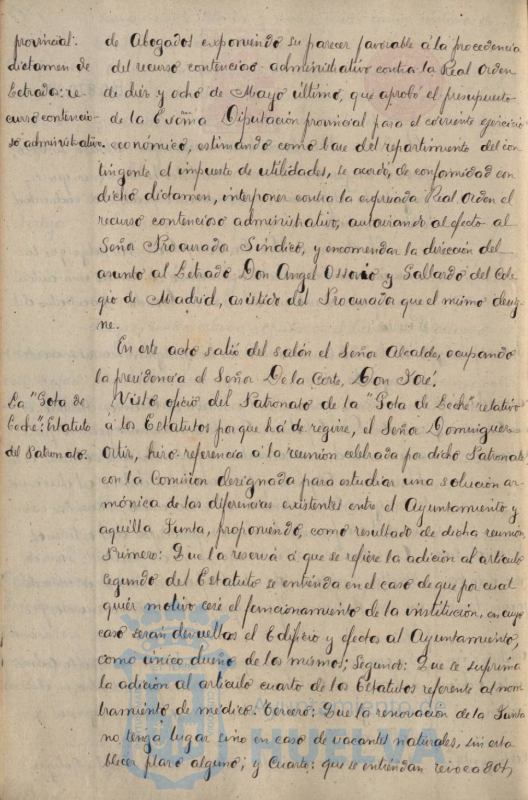 provincial:
dictamen de
Letrado: re-
curso contencio-
so administrativo.
de Abogados exponiendo su parecer favorable á la procedencia
del recurso contencioso administrativo contra la Real Orden
de diez y ocho de Mayo último, que aprobó el presupuesto
de la Excma Diputación provincial para el corriente ejercicio
económico, estimando como base del repartimiento del con-
tingente el impuesto de utilidades, se acordó, de conformidad con
dicho dictamen, interponer contra la expresada Real Orden el
recurso contencioso administrativo, autorizando al efecto al
Señor Procurador Síndico, y encomendar la dirección del
asunto al Letrado Don Angel Ossorio y Gallardo del Cole-
gio de Madrid, asistido del Procurador que el mismo desig-
ne.
En este acto salió del salón el Señor Alcalde, ocupando
la presidencia el Señor De la Corte, Don José.
La "Gota de
Leche": Estatuto
del Patronato.
Visto oficio del Patronato de la "Gota de Leche" relativo
á los Estatutos por que há de regirse, el Señor Dominguez
Ortiz, hizo referencia á la reunión celebrada por dicho Patronato
con la Comision designada para estudiar una solución ar-
mónica de las diferencias existentes entre el Ayuntamiento y
aquella Junta, proponiendo, como resultado de dicha reunión,
Primero: Que la reserva á que se refiere la adición al artículo
segundo del Estatuto se entienda en el caso de que por cual
quiér motivo cese el funcionamiento de la institución, en cuyo
caso serán devueltos el Edificio y efectos al Ayuntamiento,
como único dueño de los mismos; Segundo: Que se suprima
la adición al artículo cuarto de los Estatutos referente al nom-
bramiento de médico. Tercero: Que la renovación de la Junta
no tenga lugar sino en caso de vacantes naturales, sin esta
blecer plazo alguno; y Cuarto: que se entiendan revocados
Ayuntamiento de
HUELVA